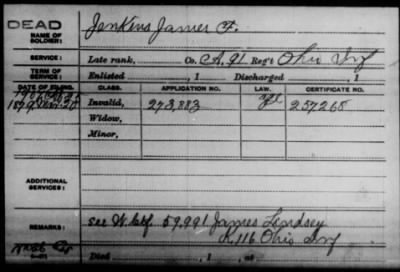 DEAD
NAME OF SOLDIER: Jenkins James F.
SERVICE: Late rank, Co. A, 91 Reg't Ohio Inf
TERM OF SERVICE: Enlisted , 1 Discharged , 1
DATE OF FILING. CLASS. APPLICATION NO. LAW. CERTIFICATE NO.
1879 Invalid, 273,883 257268
Widow,
Minor,
ADDITIONAL SERVICES:
REMARKS: see W. Ctf. 59,991 James Lindsey
K, 116 Ohio Inf
Died , 1 , at